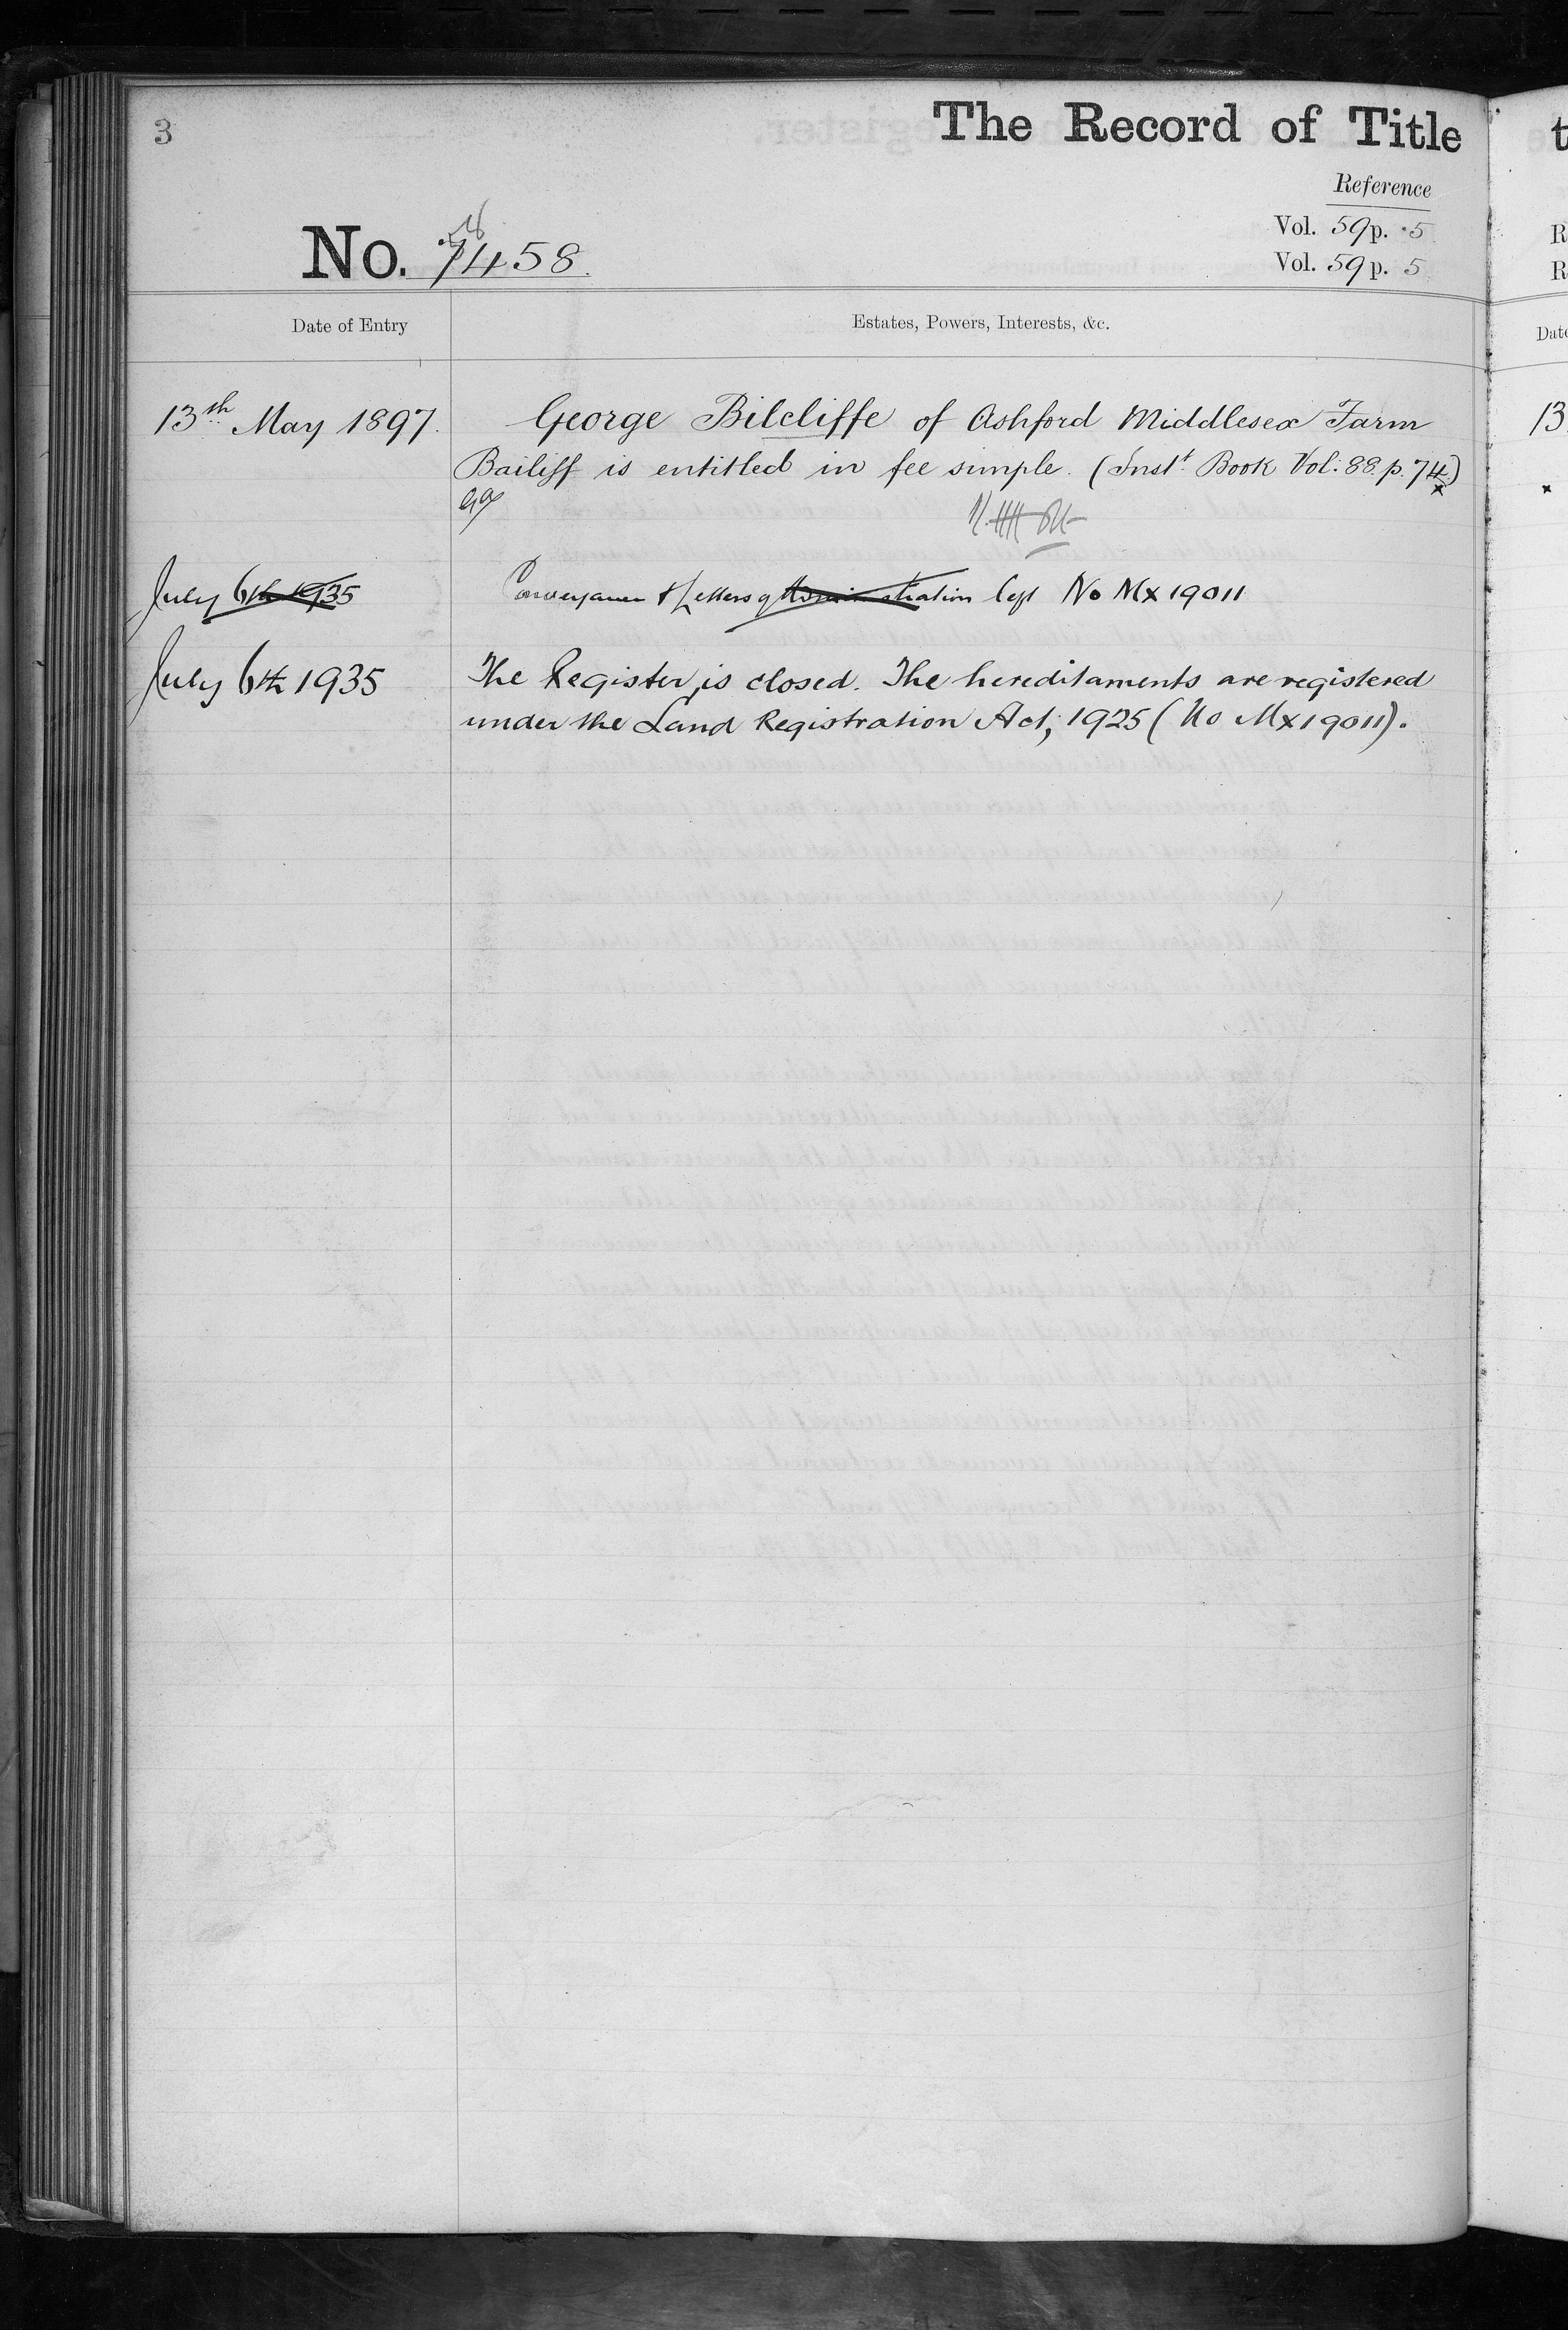 3
The Record of Title
Reference
Vol. 59 p. 5
No. 7458.
Vol. 59 p. 5
Date of Entry
Estates, Powers, Interests, &c.
13th May 1897.
George Bilcliffe of Ashford Middlesex Farm
Bailiff is entitled in fee simple. (Instt. Book Vol: 88. p. 74)
July 6th 1935
Conveyance & Letters of Administration No Mx 19011
July 6th 1935
The Register is closed. The hereditaments are registered
under the Land Registration Act, 1925 (No Mx19011).
t
R
R
Date
13